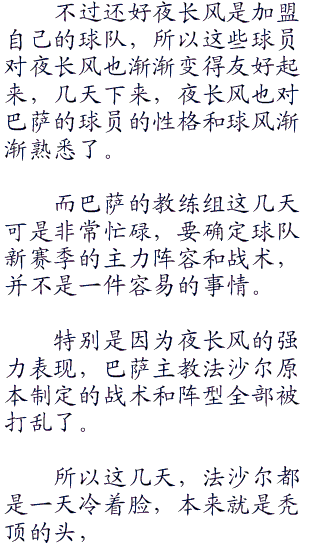 不过还好夜长风是加盟
自己的球队，所以这些球员
对夜长风也渐渐变得友好起
来，几天下来，夜长风也对
巴萨的球员的性格和球风渐
渐熟悉了。
而巴萨的教练组这几天
可是非常忙碌，要确定球队
新赛季的主力阵容和战术，
并不是一件容易的事情。
特别是因为夜长风的强
力表现，巴萨主教法沙尔原
本制定的战术和阵型全部被
打乱了。
所以这几天，法沙尔都
是一天冷着脸，本来就是秃
顶的头，